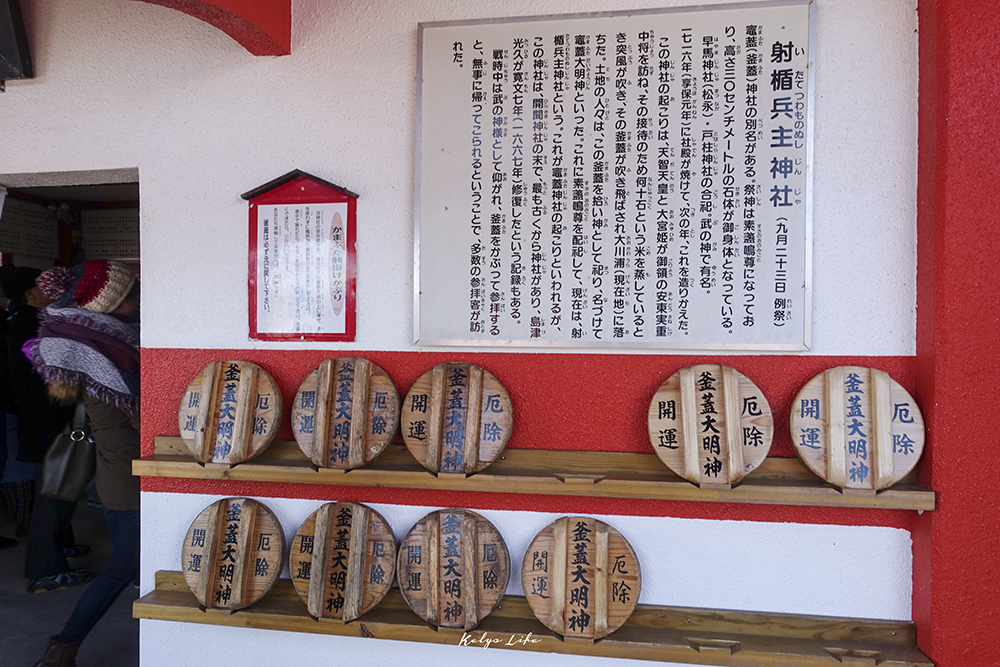 射楯兵主神社(九月二十三日 例祭)
竈蓋(釜蓋)神社の別名がある。祭神は素盞鳴尊になってお
り、高さ三〇センチメートルの石体が御身体となっている。
早馬神社(松永)・戸柱神社の合祀。武の神で有名。
一七一六年(享保元年)に社殿が焼けて、次の年、これを造りかえた。
この神社の起こりは、天智天皇と大宮姫が御領の安東実重
中将を訪ね、その接待のため何十石という米を蒸していると
き突風が吹き、その釜蓋が吹き飛ばされ大川浦(現在地)に落
ちた。土地の人々は、この釜蓋を拾い神として祀り、名づけて
竈蓋大明神といった。これに素盞鳴尊を配祀して、現在は、射
楯兵主神社という。これが竈蓋神社の起こりといわれるが、
この神社は、開聞神社の末で、最も古くから神社があり、島津
光久が寛文七年(一六六七年)修復したという記録もある。
戦時中は武の神様として仰がれ、釜蓋をかぶって参拝する
と、無事に帰ってこられるということで、多数の参拝客が訪
れた。
かまふた願掛けかぶり
釜蓋は必ず元に戻して下さい。
開運 釜蓋大明神 厄除
開運 釜蓋大明神 厄除
開運 釜蓋大明神 厄除
開運 釜蓋大明神 厄除
開運 釜蓋大明神 厄除
開運 釜蓋大明神 厄除
開運 釜蓋大明神 厄除
開運 釜蓋大明神 厄除
開運 釜蓋大明神 厄除
Kelys Life